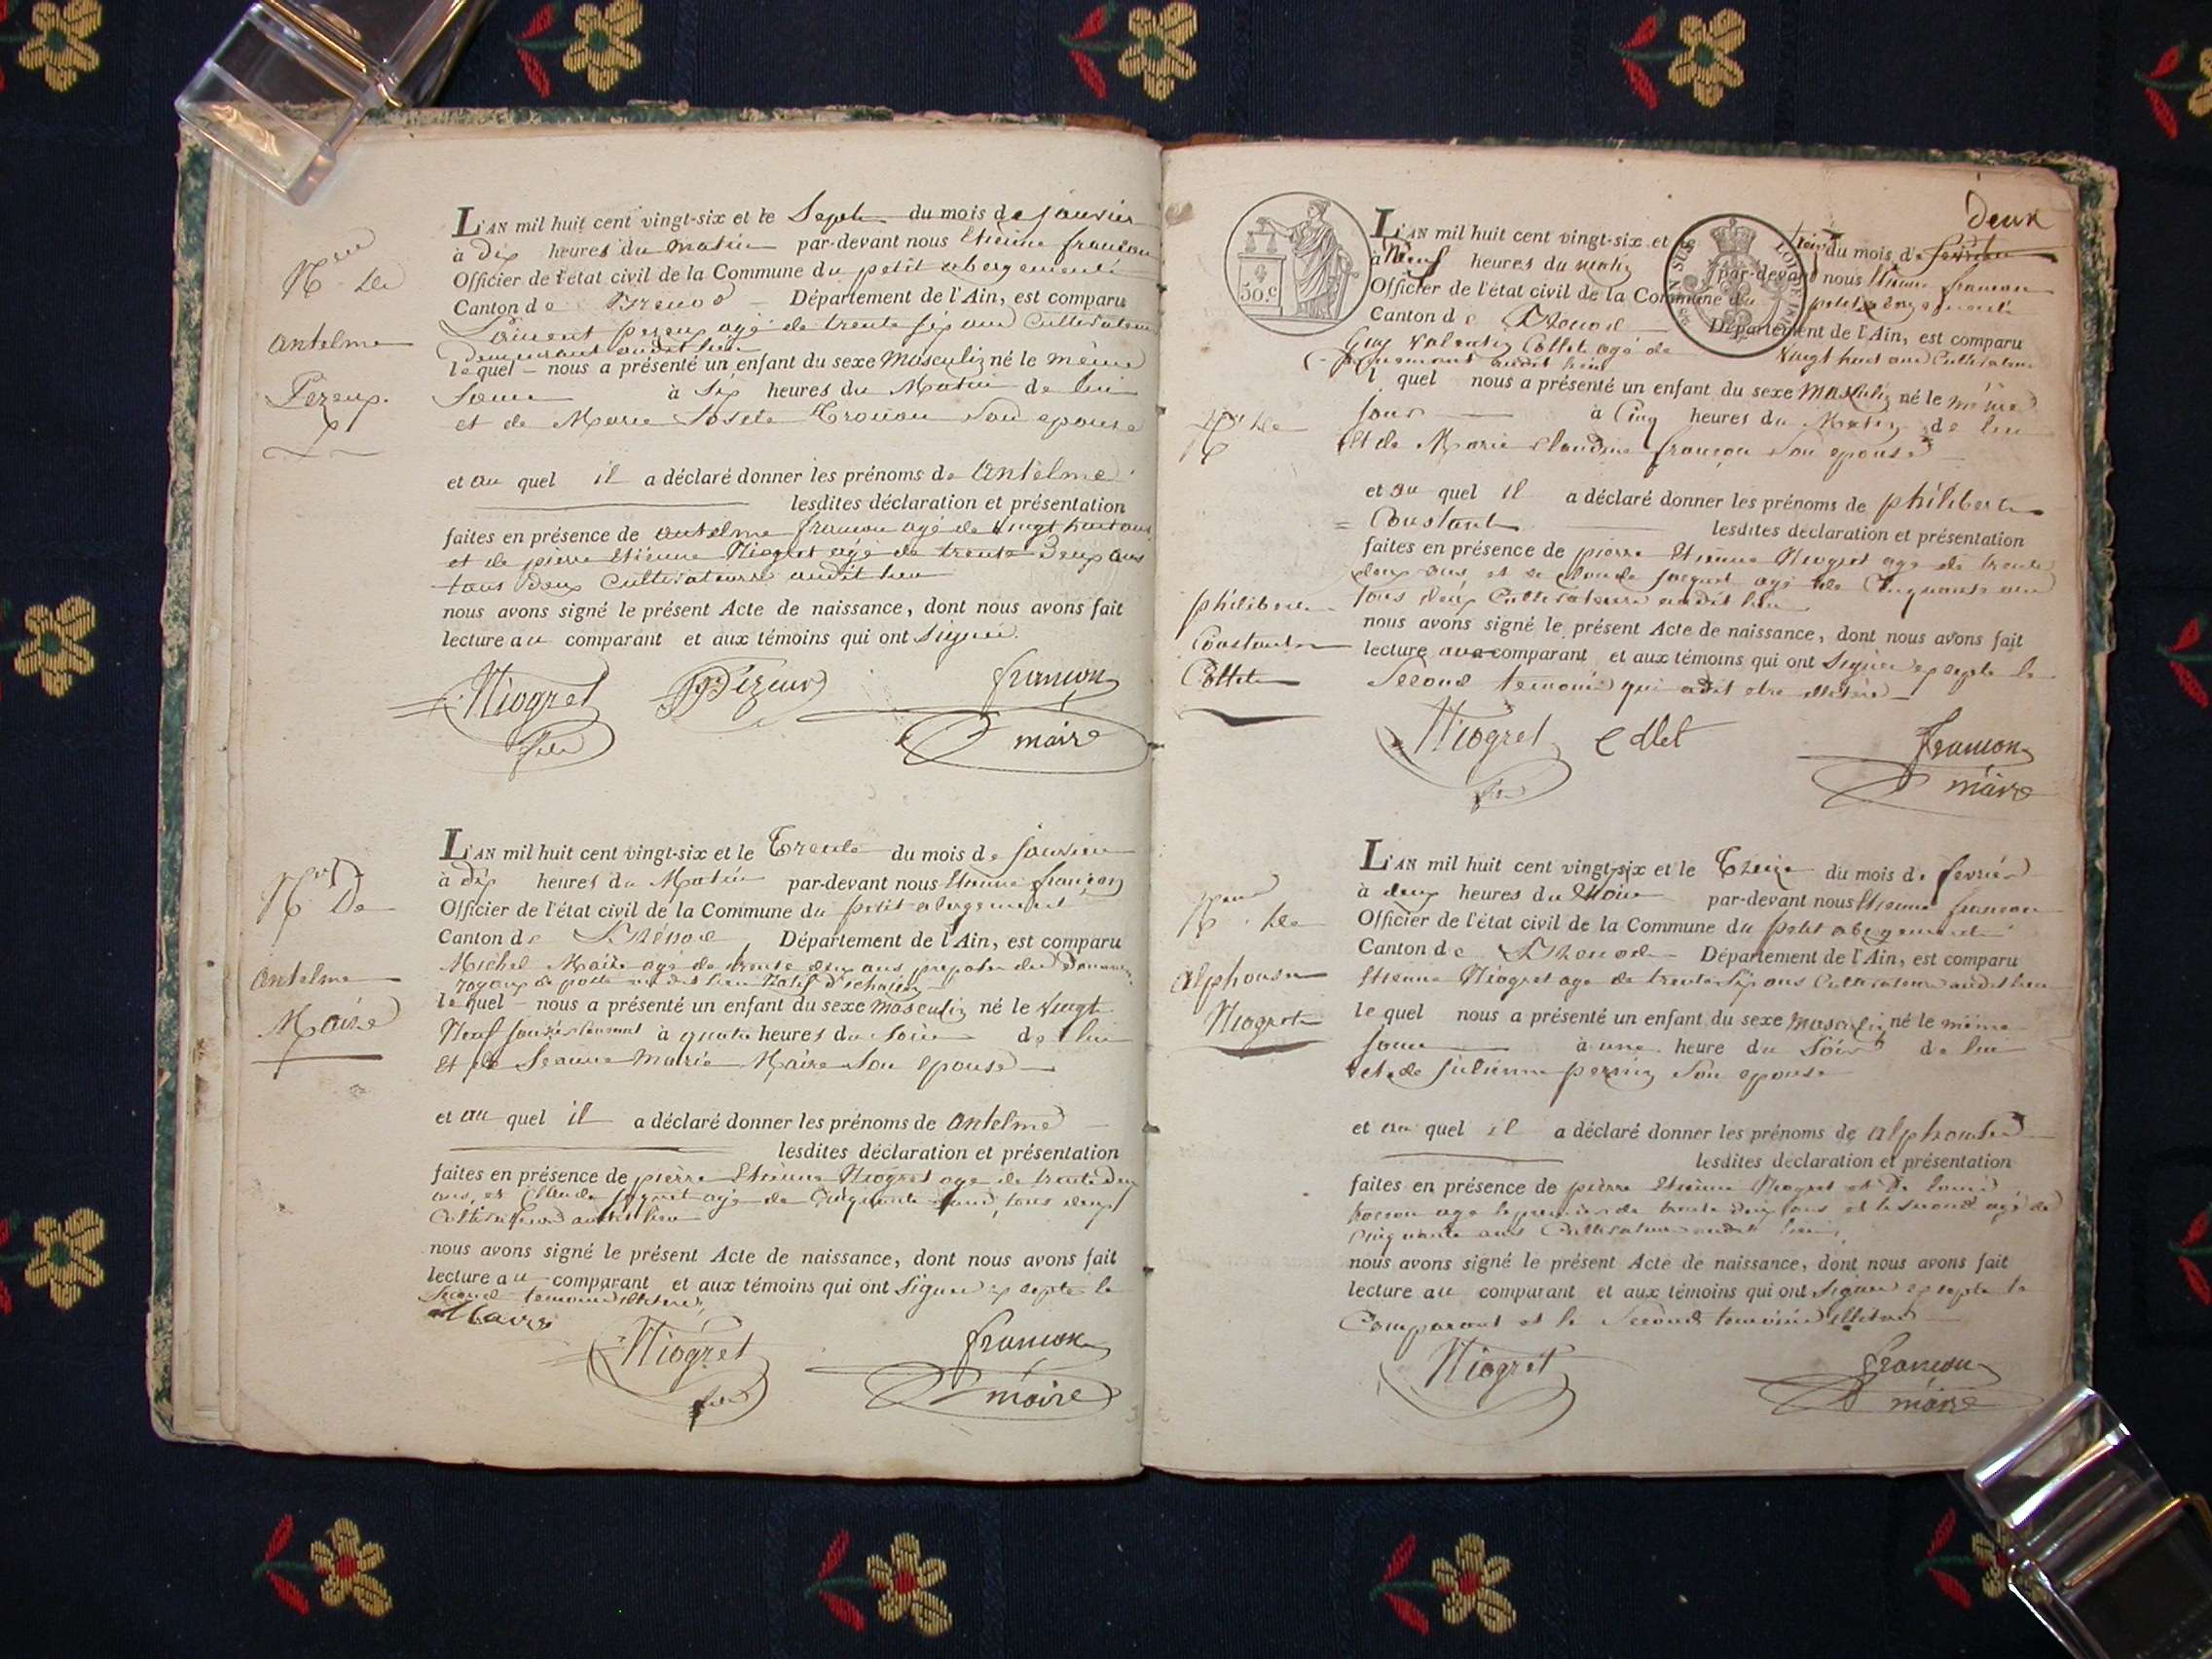 L'AN mil huit cent vingt-six et le Sept du mois de janvier
à dix heures du matin par-devant nous Etienne françon
Officier de l'état civil de la Commune du petit abergement
Canton de Brenod Département de l'Ain, est comparu
Laurent pezeux agé de trente six ans Cultivateur
demeurant audit lieu
lequel nous a présenté un enfant du sexe Masculin né le même
Jour à Six heures du Matin de lui
et de Marie Josete son epouse
et au quel il a déclaré donner les prénoms de Antelme
lesdites déclaration et présentation
faites en présence de antelme françon agé de vingt huit ans
et de pierre Etienne Niogret agé de trente deux ans
tous deux Cultivateurs audit lieu
nous avons signé le présent Acte de naissance, dont nous avons fait
lecture au comparant et aux témoins qui ont Signé.
Niogret Pezeux françon
fils maire
Nce de
antelme
Pezeux
L'AN mil huit cent vingt-six et le Trente du mois de janvier
à dix heures du Matin par-devant nous Etienne françon
Officier de l'état civil de la Commune du petit abergement
Canton de Brénod Département de l'Ain, est comparu
Michel Maire agé de trente deux ans préposé des Douanes
royaux de poste audit lieu natif d'echallon
lequel nous a présenté un enfant du sexe masculin né le vingt
Neuf à quatre heures du Soir de lui
et de Jeanne Marie Maire son epouse
et au quel il a déclaré donner les prénoms de antelme
lesdites déclaration et présentation
faites en présence de pierre Etienne Niogret age de trente deux
ans, et Claude Jacquet agé de Cinquante ans, tous deux
Cultivateurs audit lieu
nous avons signé le présent Acte de naissance, dont nous avons fait
lecture au comparant et aux témoins qui ont Signé excepté le
Second temoin illitéré
Maire Niogret françon
fils maire
N De
antelme
Maire
deux
50.c
L'AN mil huit cent vingt-six et le trois du mois de février
à Neuf heures du matin par-devant nous Etienne françon
Officier de l'état civil de la Commune du petit abergement
Canton de Brenod Département de l'Ain, est comparu
Guy Valentin Collet agé de vingt huit ans Cultivateur
demeurant audit lieu
lequel nous a présenté un enfant du sexe Masculin né le même
jour à Cinq heures du Matin de lui
et de Marie Claudine françon son epouse
et au quel il a déclaré donner les prénoms de philibert
Constant lesdites déclaration et présentation
faites en présence de pierre Etienne Niogret age de trente
deux ans et de Claude Jacquet agé de Cinquante ans
tous deux Cultivateurs audit lieu
nous avons signé le présent Acte de naissance, dont nous avons fait
lecture au comparant et aux témoins qui ont Signé excepté le
Second temoin qui a dit etre illitéré
Niogret Collet françon
fils maire
de
philibert
Constant
Collet
L'AN mil huit cent vingt-six et le Treize du mois de fevrier
à deux heures du Soir par-devant nous Etienne françon
Officier de l'état civil de la Commune du petit abergement
Canton de Brenod Département de l'Ain, est comparu
Etienne Niogret age de trente Six ans Cultivateur audit lieu
lequel nous a présenté un enfant du sexe masculin né le même
Jour à une heure du Soir de lui
et de julienne perrin Son epouse
et au quel il a déclaré donner les prénoms de alphonse
lesdites déclaration et présentation
faites en présence de pierre Etienne Niogret et de
age le premier de trente deux ans et le second agé de
Cinquante ans Cultivateurs audit lieu,
nous avons signé le présent Acte de naissance, dont nous avons fait
lecture au comparant et aux témoins qui ont signé excepté le
Comparant et le Second temoin illitéré
Niogret françon
maire
de
alphonse
Niogret